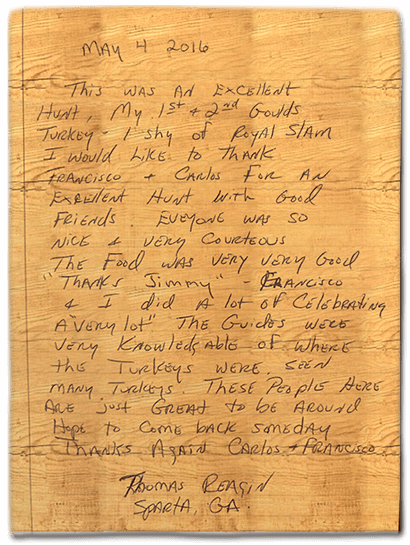 MAY 4 2016
This was AN EXCELLENT
Hunt, My 1st + 2nd Goulds
Turkey - 1 shy of Royal Slam
I would Like to Thank
Francisco + Carlos For AN
Excellent Hunt with Good
Friends Eveyone was so
Nice & very Courteous
The Food was very very Good
"Thanks Jimmy" - Francisco
& I did A lot of Celebrating
A "very lot" The Guides were
very Knowledgable of where
the Turkeys were. Seen
many Turkeys. These People Here
Are just Great to be Around
Hope to Come back someday
Thanks Again Carlos + Francisco
Thomas Reagin
Sparta, GA.